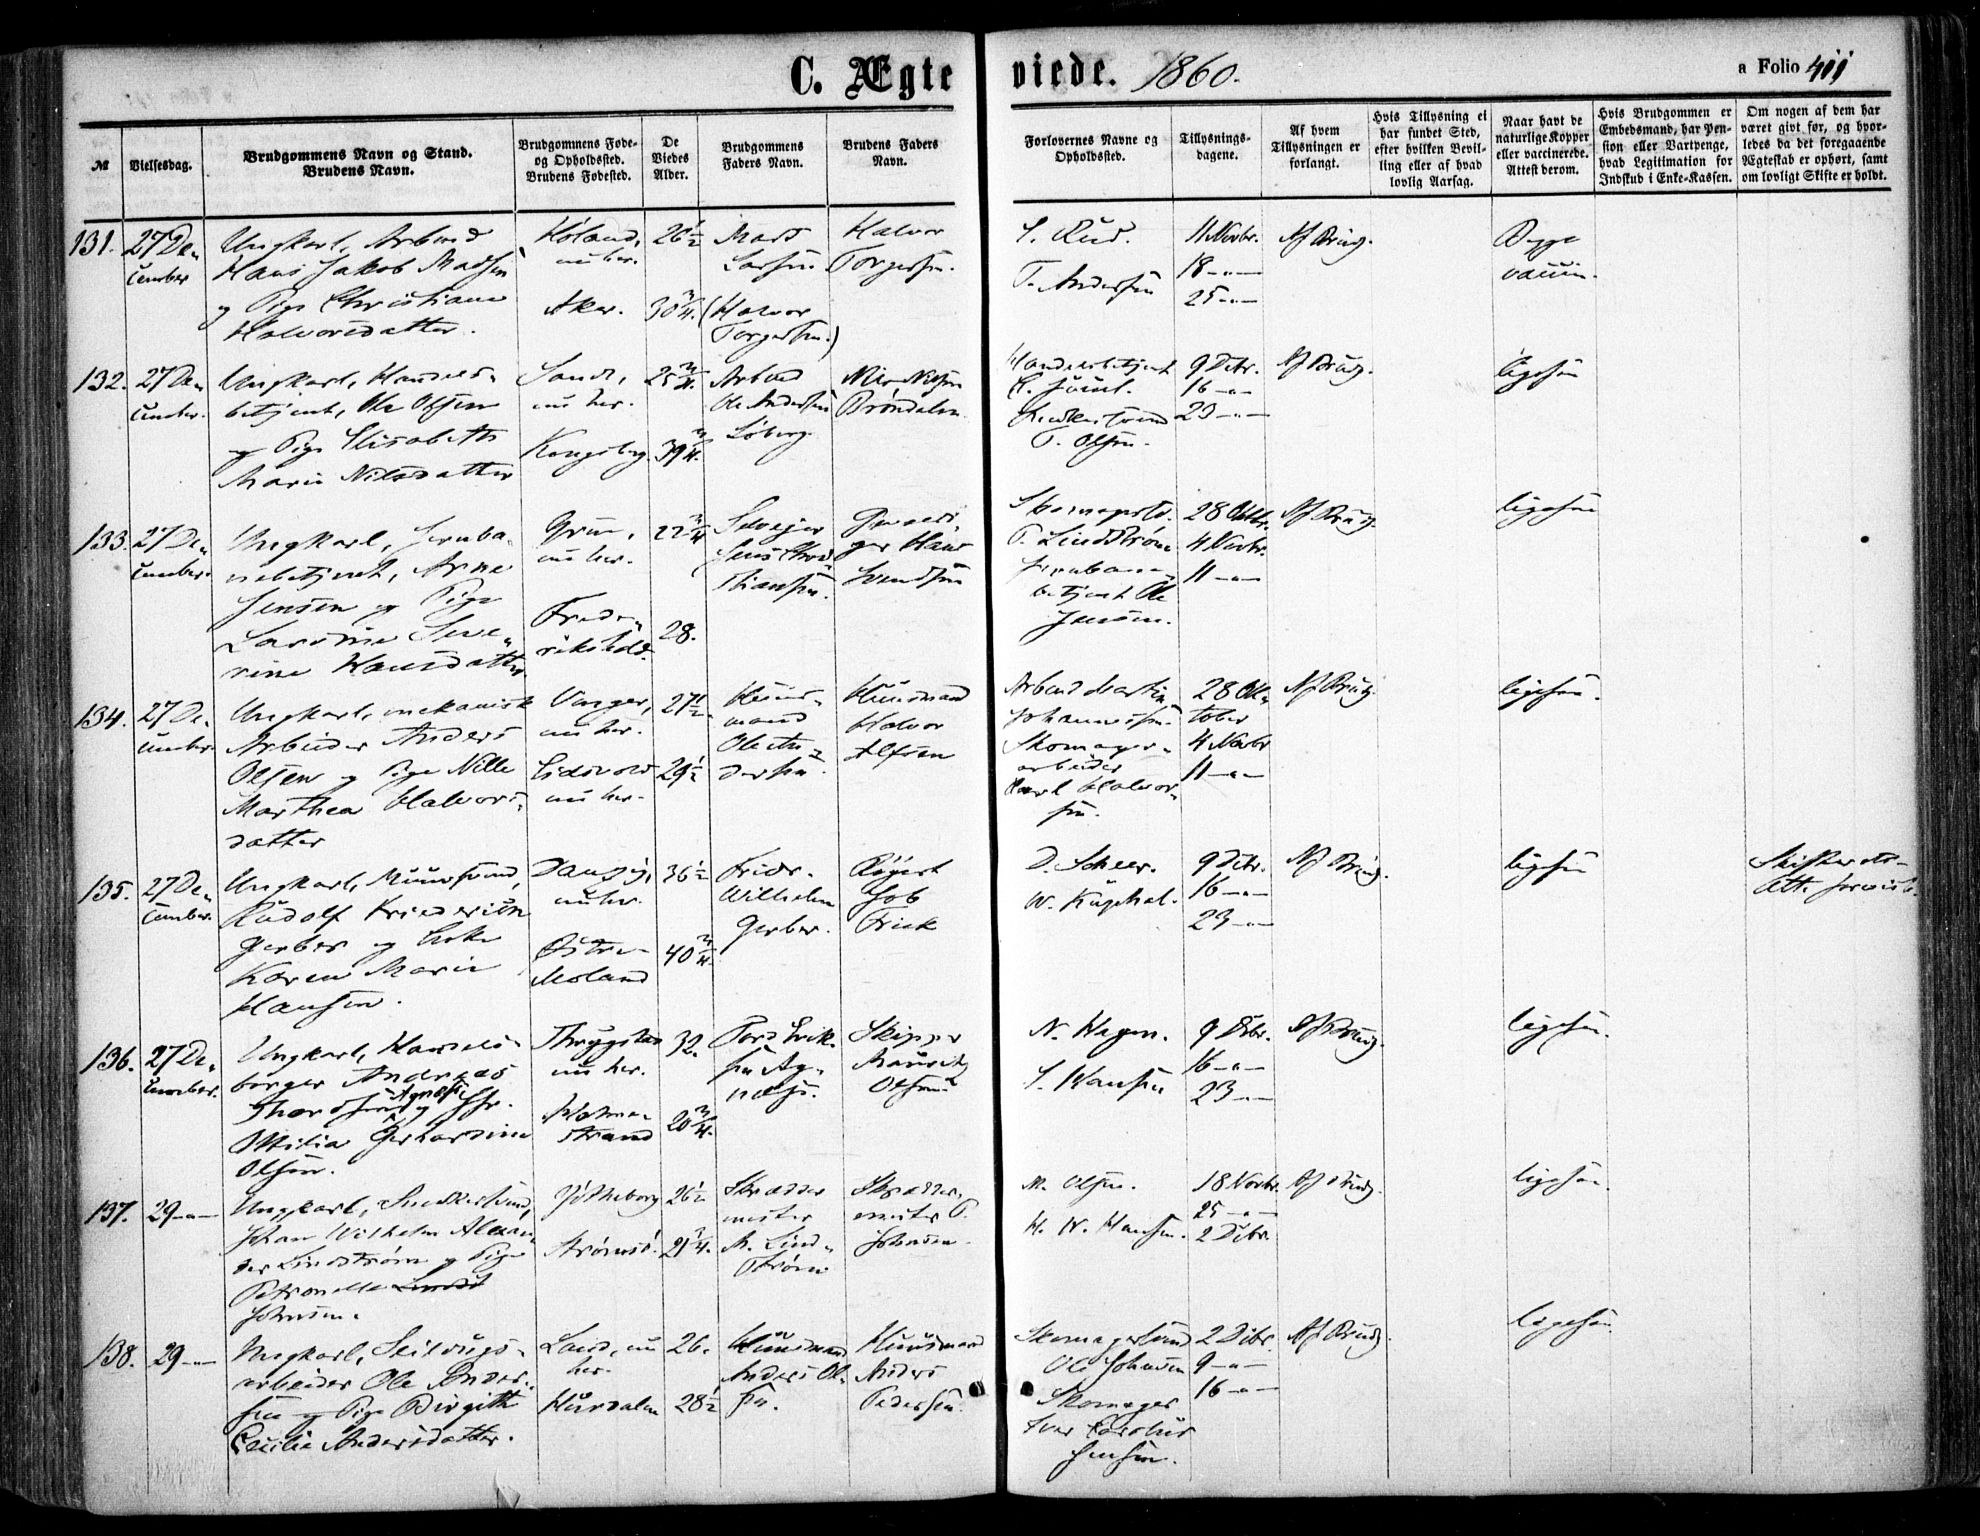 C. Ægteviede. 1860.
a Folio 411
№
Vielsesdag.
Brudgommens Navn og Stand.
Brudens Navn.
Brudgommens Føde-
og Opholdssted.
Brudens Fødested.
De
Viedes
Alder.
Brudgommens
Faders Navn.
Brudens Faders
Navn.
Forlovernes Navne og
Opholdssted.
Tillysnings-
dagene.
Af hvem
Tillysningen er
forlangt.
Hvis Tillysning ei
har fundet Sted,
efter hvilken Bevil-
ling eller af hvad
lovlig Aarsag.
Naar havt de
naturlige Kopper
eller vaccinerede.
Attest derom.
Hvis Brudgommen er
Embedsmand, har Pen-
sion eller Vartpenge,
hvad Legitimation for
Indskud i Enke-Kassen.
Om nogen af dem har
været givt før, og hvor-
ledes da det foregaaende
Ægteskab er ophørt, samt
om lovligt Skifte er holdt.
131.
27 De-
cember
Ungkarl, Arbmd
Hans Jakob Madsen
og Pige Christiane
Halvorsdatter.
Høland,
nu her.
Aker.
26 1/2
30 3/4.
Mads
Larsen
(Halvor
Torgersen.)
Halvor
Torgersen.
T. Andersen
11 Novbr.
18 —"—
25 —"—
Af Brudg.
Begge
vaccin.
132.
27 De-
cember.
Ungkarl, Handels-
betjent, Ole Olsen
og Pige Elisabeth
Marie Nilsdatter
Sand,
nu her.
Kongsberg.
25 3/4.
39 3/4.
Arbmd
Ole Andersen
Nils Nilsen
Handelsbetjent
T. Olsen.
9 Dcbr.
16 —"—
23 —"—
Af Brudg.
ligesaa
133.
27 De-
cember.
Ungkarl, Jernba-
nebetjent, Arne
Jensen og Pige
Larsine Seve-
rine Hansdatter
nu her.
Frede-
rikshald.
22 3/4
28.
Selveier
Jens Chri-
stiansen.
Hans
Svendsen
P. Lindstrøm
Jernbane-
betjent Ole
Jensen.
28 Octbr.
4 Novbr.
11 —"—
Af Brudg.
ligesaa
134.
27 De-
cember.
Ungkarl, mekanisk
Arbeider Anders
Olsen og Pige Nille
Marthea Halvors-
datter
Vinger,
nu her.
Eidsvold
nu her.
27 1/2.
29 1/2
Huus-
mand
Ole An-
dersen.
Huusmand
Halvor
Alfsen
Arbmd Martin
Johannesen
Skomager-
arbeider
Carl Halvor-
sen.
28 Ok-
tober
4 Novbr
11 —"—
Af Brudg.
ligesaa.
135.
27 De-
cember.
Ungkarl, Muursvend,
Rudolf Friederich
Gerber og Enke
Karen Marie
Hansen.
Danzig,
nu her.
Østre
Moland
36 1/2
40 3/4.
Fridr.
Wilhelm
Gerber.
Job
Frick
D. Scheer.
9 Dcbr.
16 —"—
23 —"—
Af Brudg.
ligesaa
Skifterets-
Att. forevist.
136.
27 De-
cember.
Ungkarl, Handels-
borger Andreas
Thordsen Agnæs og Jfr.
Ottilia Gerhardine
Olsen.
Thrygstad
nu her.
Holme-
strand
32.
20 3/4.
Tord Erik-
sen Ag-
næs.
Skipper
Mauritz
Olsen.
N. Hagen.
S. Hansen
9 Dcbr.
16 —"—
23 —"—
Af Brudg.
ligesaa.
137.
29 —"—
Ungkarl, Snedkersvend,
Johan Wilhelm Alexan-
der Lindstrøm og Pige
Petronelle
Johnsen.
Gøtheborg
Strømsø.
26 1/2
21 3/4.
Skrædder
mester
A. Lind-
strøm
Skrædder-
mester P.
Johnsen.
M. Olsen.
H. W. Hansen.
18 Novbr.
25 —"—
2 Dcbr.
Af Brudg.
ligesaa.
138.
29 —"—
Ungkarl, Seildugs-
arbeider Ole Ander-
sen og Pige Birgith
Cecilie Andersdatter.
Land, nu
her.
Hurdalen
26.
28 1/2
Huusmand
Anders Ol-
sen.
Huusmand
Anders
Pedersen.
Skomagersvend
Ole Johnsen
Skomager
Iver
Jensen.
2 Dcbr.
9 —"—
16 —"—
Af Brudg.
ligesaa.